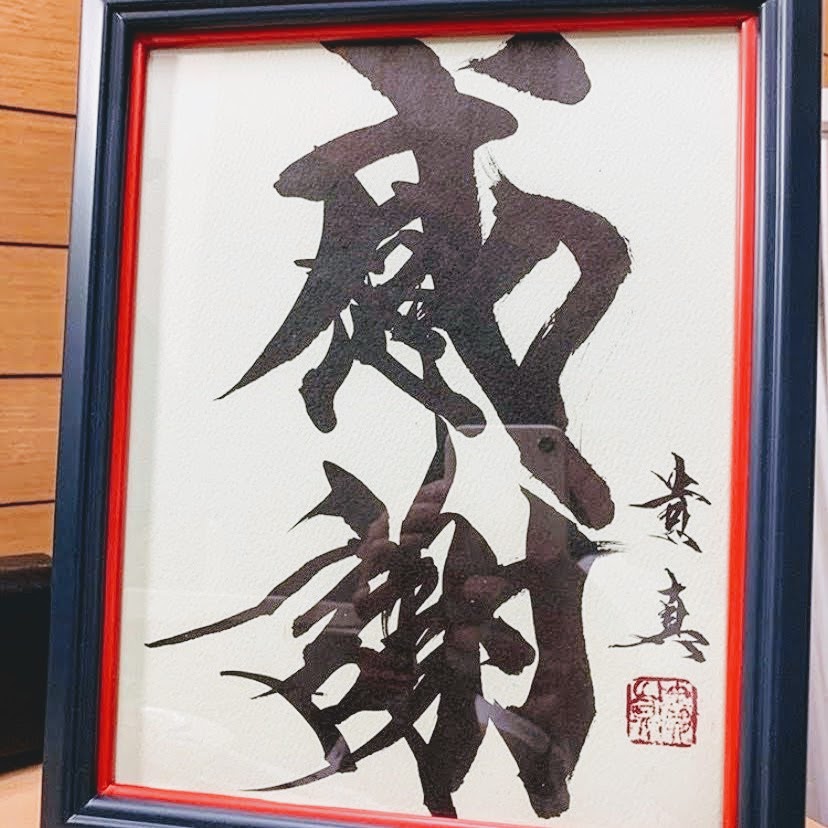 感謝
貴真